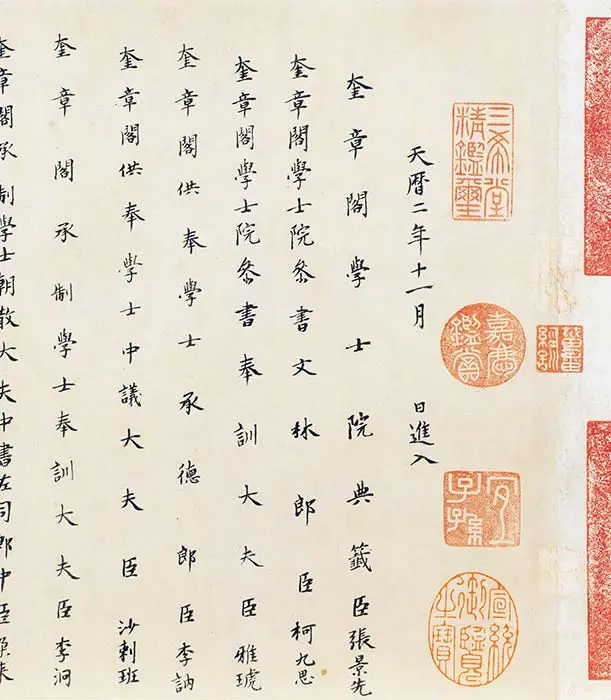 三希堂精鑑璽
嘉慶鑑賞
宜子孫
宣統御覽之寶
天曆二年十一月 日進入
奎章閣學士院典籤臣張景先
奎章閣學士院叅書文林郎臣柯九思
奎章閣學士院叅書奉訓大夫臣雅琥
奎章閣供奉學士承德郎臣李訥
奎章閣供奉學士中議大夫臣沙剌班
奎章閣承制學士奉訓大夫臣李泂
奎章閣承制學士朝散大夫中書左司郎中臣